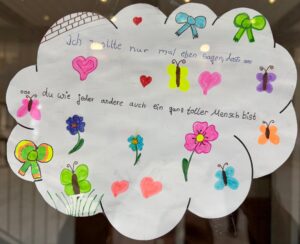 Ich wollte nur mal eben sagen, dass ...
... du wie jeder andere auch ein ganz toller Mensch bist